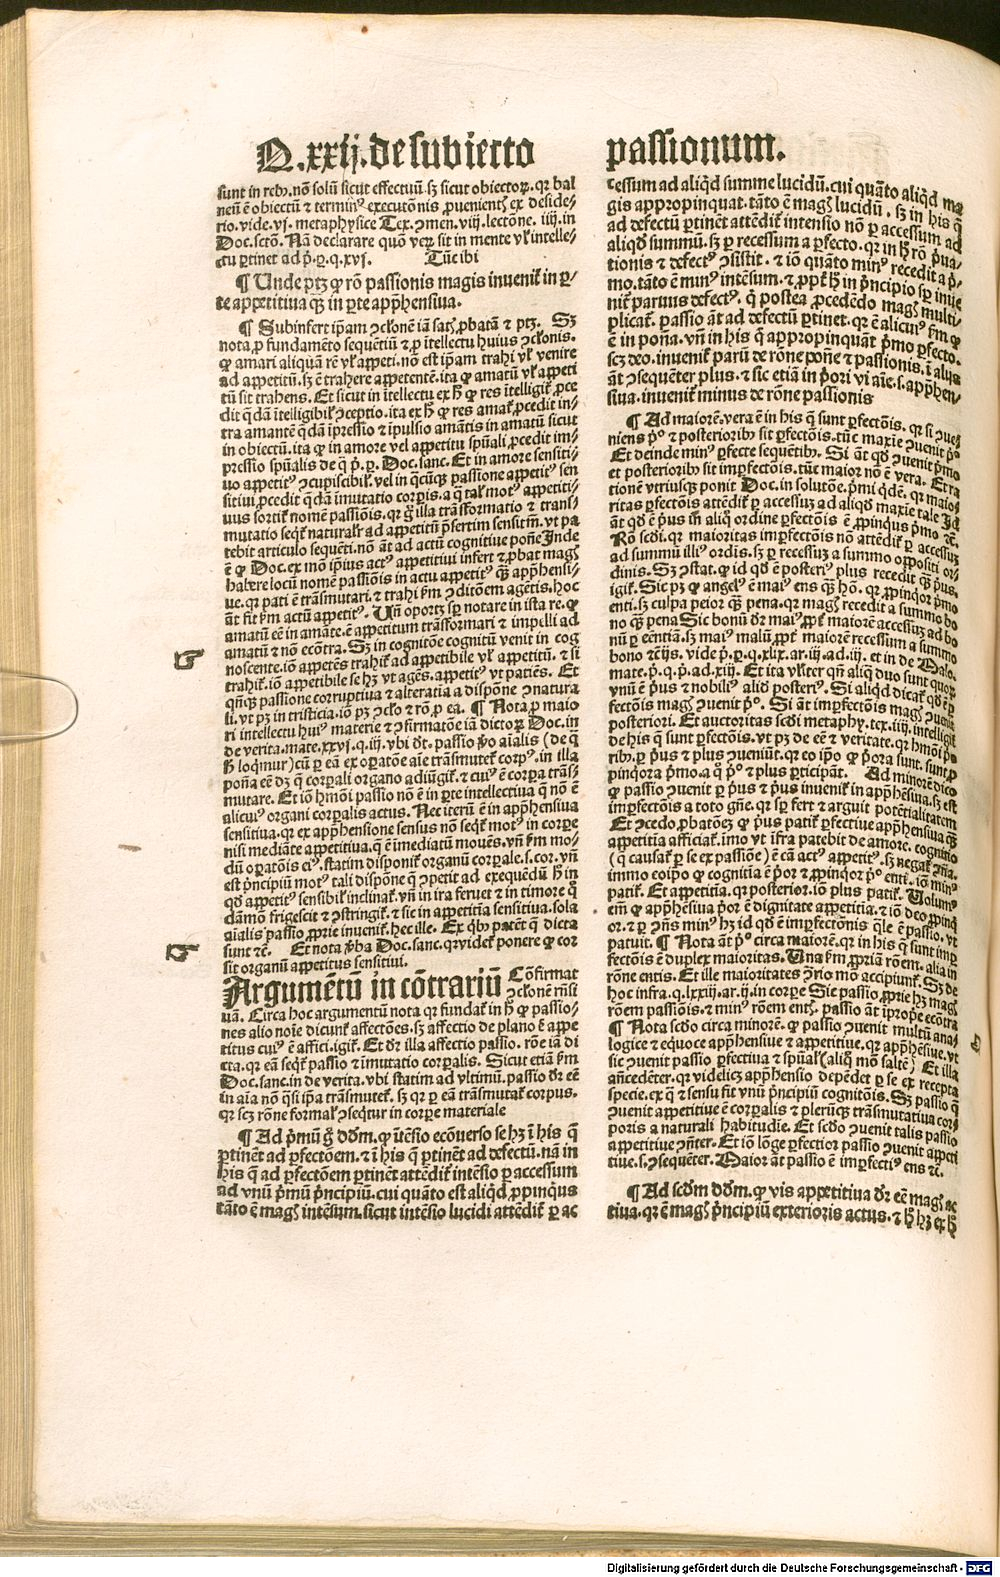 Q. xxij. de subiecto
sunt in reb9. nō solū sicut effectuū sꝫ sicut obiectoꝝ. qꝛ bal
neū ē obiectū ⁊ termin9 executōnis ꝓuenient9 ex deside-
rio. vide. vj. metaphysice Tex. ꝯmen. viij. lectōne. iiij. in
Doc. sctō. Nā declarare quō veꝝ sit in mente vl̓ intelle-
ctu ꝑtinet ad p̄. ꝑ. q. xvj. Tūc ibi
¶ Unde ptꝫ ꝙ rō passionis magis inuenit̄ in ꝑ-
te appetitiua qꝫ in ꝑte app̄hensiua.
¶ Subinfert ip̄am ꝯclōnē iā satꝭ ꝓbatā ⁊ ptꝫ. Sꝫ
nota ꝓ fundamēto sequētiū ⁊ ꝑ ītellectu huius ꝯclōnis.
ꝙ amari aliquā rē vl̓ appeti. nō est ip̄am trahi vl̓ venire
ad appetitū. sꝫ ē trahere appetentē. ita ꝙ amatū vl̓ appeti
tū sit trahens. Et sicut in itellectu ex ħ ꝙ res itelligit̄ ꝓce
dit q̄dā ītelligibil̓ ꝯceptio. ita ex ħ ꝙ res amat̄ ꝓcedit in-
tra amantē q̄dā īpressio ⁊ īpulsio amātis in amatū sicut
in obiectū. ita ꝙ in amore vel appetitu spūali ꝓcedit im-
pressio spūalis de q̄ p̄. ꝑ. Doc. sanc. Et in amore sensiti-
uo appetit9 ꝯcupiscibil̓. vel in q̄cūqꝫ passione appetit9 sen
sitiui ꝓcedit q̄dā īmutatio corꝑis. a q̄ tal̓ mot9 appetiti-
uus sortit̄ nomē passiōis. qꝛ q̄ illa trāsformatio ⁊ trans-
mutatio seqt̄ naturalr̄ ad appetitū p̄sertim sensitīm. vt pa
tebit articulo sequēti. nō āt ad actū cognitiue poñe Inde
ē ꝙ Doc. ex mō ip̄ius act9 appetitiui infert ⁊ ꝓbat magꝭ
habere locū nomē passiōis in actu appetit9 qꝫ app̄hensi-
ue. qꝛ pati ē trāsmutari. ⁊ trahi ẜm ꝯditōem agētis. hoc
āt fit ẜm actū appetit9. Uñ oportꝫ sꝑ notare in ista re. ꝙ
amatū eē in amāte. ē appetitum trāsformari ⁊ impelli ad
amatū ⁊ nō ecōtra. Sꝫ in cognitōe cognitū venit in cog
noscente. iō appetēs trahit̄ ad appetibile vl̓ appetitū. ⁊ si
trahit̄. iō appetibile se hꝫ vt agēs. appetit9 vt patiēs. Et
qn̄qꝫ passione corruptiua ⁊ alteratia a dispōne ꝯnatura
li. vt pꝫ in tristicia. iō pꝫ ꝯclō ⁊ rō ꝓ ea. ¶ Nota ꝓ maio
ri intellectu hui9 materie ⁊ ꝯfirmatōe iā dictoꝝ Doc. in
de verita. mate. xxvj. q. iij. vbi dt̄. passio p̄o aīalis (de q̄
ħ loqmur) cū ꝑ eā ex oꝑatōe aīe trāsmutet̄ corp9. in illa
poña eē dꝫ q̄ corꝑali organo adiūgit̄. ⁊ cui9 ē corꝑa trās-
mutare. Et iō hmōi passio nō ē in ꝑte intellectiua q̄ nō ē
alicui9 organi corꝑalis actus. Nec iterū ē in app̄hensiua
sensitiua. qꝛ ex app̄hensione sensus nō seqt̄ mot9 in corꝑe
nisi mediāte appetitiua. q̄ ē imediatū mouēs. vñ ẜm mo-
dū oꝑatōis ei9. statim disponit̄ organū corꝑale. s. cor. vñ
est p̄ncipiū mot9 tali dispōne q̄ ꝯpetit ad exequēdū ħ in
qđ appetit9 sensibil̓ inclinat̄. vñ in ira feruet ⁊ in timore q̄
dāmō frigescit ⁊ ꝯstringit̄. ⁊ sic in appetitīa sensitiua. sola
aīalis passio ꝓprie inuenit̄. hec ille. Ex qb9 patēt q̄ dicta
sunt ⁊c̄. Et nota p̄ba Doc. sanc. qꝛ videt̄ ponere ꝙ cor
sit organū appetitus sensitiui.
Argumētū in cōtrariū Cōfirmat
ꝯclonē rn̄si
uā. Circa hoc argumentū nota qꝛ fundat̄ in ħ ꝙ passio-
nes alio noīe dicunt̄ affectōes. sꝫ affectio de plano ē appe
titus cui9 ē affici. igit̄. Et dr̄ illa affectio passio. rōne iā di
cta. qꝛ eā seqt̄ passio ⁊ īmutatio corꝑalis. Sicut etiā ẜm
Doc. sanc. in de verita. vbi statim ad vltimū. passio dr̄ eē
in aīa nō q̄si ipa trāsmutet̄. sꝫ qꝛ ꝑ eā trāsmutat̄ corpus.
qꝛ scꝫ rōne formal̓ ꝯseqtur in corꝑe materiale
¶ Ad p̄mū g̊ dđm. ꝙ ītēsio ecōuerso se hꝫ ī his q̄
ꝑtinēt ad ꝑfectōem. ⁊ ī his q̄ ꝑtinēt ad defectū. nā in
his q̄ ad ꝑfectōem ꝑtinēt attēdit̄ intēsio ꝑ accessum
ad vnū p̄mū p̄ncipiū. cui quāto est aliqd ꝓpinqus
tāto ē magꝭ intēsum. sicut intēsio lucidi attēdit̄ ꝑ ac
passionum.
cessum ad aliqd summe lucidū. cui quāto aliqd ma
gis appropinquat. tāto ē magꝭ lucidū. sꝫ in his q̄
ad defectū ꝑtinēt attēdit̄ intensio nō ꝑ accessum ad
aliqđ summū. sꝫ ꝑ recessum a ꝑfecto. qꝛ in ħ rō p̄ua-
tionis ⁊ defect9 ꝯsistit. ⁊ iō quāto min9 recedit a p̄-
mo. tāto ē min9 intēsum. ⁊ ꝓpt̄ ħ in p̄ncipio sꝑ inue
nit̄ paruus defect9. q̄ postea ꝓcedēdo magꝭ multi-
plicat̄. passio āt ad defectū ꝑtinet. qꝛ ē alicui9 ẜm ꝙ
ē in poña. vñ in his q̄ appropinquāt p̄mo ꝑfecto.
scꝫ deo. inuenit̄ parū de rōne poñe ⁊ passionis. ī alijs
āt ꝯsequēter plus. ⁊ sic etiā in p̄ori vi aīe. s. app̄hen-
siua. inuenit̄ minus de rōne passionis
¶ Ad maiorē. vera ē in his q̄ sunt ꝑfectōis. qꝛ si ꝯue-
niens p̊ ⁊ posteriorib9 sit ꝑfectōis. tūc maxīe ꝯuenit p̊
Et deinde min9 ꝑfecte sequētib9. Si āt qđ ꝯuenit p̄mo
et posteriorib9 sit imꝑfectōis. tūc maior nō ē vera. Et ra
tionē vtriusqꝫ ponit Doc. in solutōne. p̄mi q̄dē. qꝛ maio
ritas ꝑfectōis attēdit̄ ꝑ accessuꝫ ad aliqđ maxīe tale Id
āt qđ ē p̄us in aliq ordine ꝑfectōis ē ꝓpinqus p̄mo ⁊c̄.
Rō scđi. qꝛ maioritas imꝑfectōis nō attēdit̄ ꝑ accessuꝫ
ad summū illi9 ordīs. sꝫ ꝑ recessuꝫ a summo oppositi or-
dinis. Sꝫ ꝯstat. ꝙ id qđ ē posteri9 plus recedit qꝫ p̄us.
igit̄. Sic pꝫ ꝙ angel9 ē mai9 ens qꝫ hō. qꝛ ꝓpinqor p̄mo
enti. sꝫ culpa peior qꝫ pena. qꝛ magꝭ recedit a summo bo
no qꝫ pena Sic bonū dr̄ mai9 ꝓpt̄ maiorē accessuꝫ ad bo
nū ꝑ eēntiā. sꝫ mai9 malū ꝓpt̄ maiorē recessum a summo
bono ⁊c̄ijs. vide p̄. ꝑ. q. xlix. ar. iij. ad. iij. et in de Malo.
mate. p̄. q. p̄. ad. xiij. Et ita vl̓ter qn̄ aliq duo sunt quoꝝ
vnū ē p̄us ⁊ nobili9 aliđ posteri9. Si aliqd dicat̄ qđ ē ꝑ
fectōis magꝭ ꝯuenit p̊. Si āt imꝑfectōis magꝭ ꝯuenit
posteriori. Et auctoritas scđi metaphy. tex. iiij. intelligit̄
de his q̄ sunt ꝑfectōis. vt pꝫ de eē ⁊ veritate. qꝛ hmōi p̊
rib9. ꝑ p̄us ⁊ plus ꝯueniūt. qꝛ eo ip̄o ꝙ p̄ora sunt. sunt ꝓ
pinqora p̄mo. a q̊ p̊ ⁊ plus ꝑticipāt. Ad minorē dico
ꝙ passio ꝯuenit ꝑ p̄us ⁊ p̄us inuenit̄ in app̄hēsiua. sꝫ est
imꝑfectōis a toto gn̄e. qꝛ sꝑ fert ⁊ arguit potētialitatem
Et ꝯcedo ꝓbatōeꝫ ꝙ p̄us patit̄ ꝑfectiue app̄hēsiua qꝫ
appetitia afficiat̄. imo vt ifra patebit de amore. cognitio
(q̄ causat̄ ꝑ se ex passiōe) ē cā act9 appetit9. sꝫ negat̄ ꝯn̄a.
immo eoip̄o ꝙ cognitīa ē p̄or ⁊ ꝓpinqor p̊ enti. iō min9
patit̄. Et appetitīa. qꝛ posterior. iō plus patit̄. Uolum9
em̄ ꝙ app̄hēsiua p̄or ē dignitate appetitia. ⁊ iō deo ꝓpinq
or. ⁊ ꝑ ꝯn̄s min9 hꝫ id qđ ē imꝑfectōnis q̄le ē passio. vt
patuit. ¶ Nota āt p̊ circa maiorē. qꝛ in his q̄ sunt imꝑ
fectōis ē duplex maioritas. Una ẜm ꝓpriā rōem. alia in
rōne entis. Et ille maioritates ꝯ̄rio mō accipiunt̄. Sꝫ de
hoc infra. q. lxxiij. ar. ij. in corꝑe Sic passio ꝓprie hꝫ magꝭ
rōem passiōis. ⁊ min9 rōem entꝭ. passio āt iproꝑe ecōtra
¶ Nota scđo circa minorē. ꝙ passio ꝯuenit multū ana-
logice ⁊ equoce app̄hēsiue ⁊ appetitiue. qꝛ app̄hēsiue. vt
sic ꝯuenit passio ꝑfectiua ⁊ spūal̓ (aliq mō saltē) Et illa
añcedēter. qꝛ videlicꝫ app̄hensio depēdet ꝑ se ex recepta
specie. ex q̄ ⁊ sensu fit vnū p̄ncipiū cognitōis. Sꝫ passio q̄
ꝯuenit appetitiue ē corꝑalis ⁊ plerūqꝫ trāsmutatiua cor-
poris a naturali habitudīe. Et scđo ꝯuenit talis passio
appetitiue ꝯn̄ter. Et iō lōge ꝑfectior passio ꝯuenit appeti
tiue. s. ꝯsequēter. Maior āt passio ē imꝑfecti9 ens ⁊c̄.
¶ Ad scđm dđm. ꝙ vis appetitiua dr̄ eē magꝭ ac
tiua. qꝛ ē magꝭ p̄ncipiū exterioris actus. ⁊ ħ hꝫ ex ħ
Digitalisierung gefördert durch die Deutsche Forschungsgemeinschaft - DFG